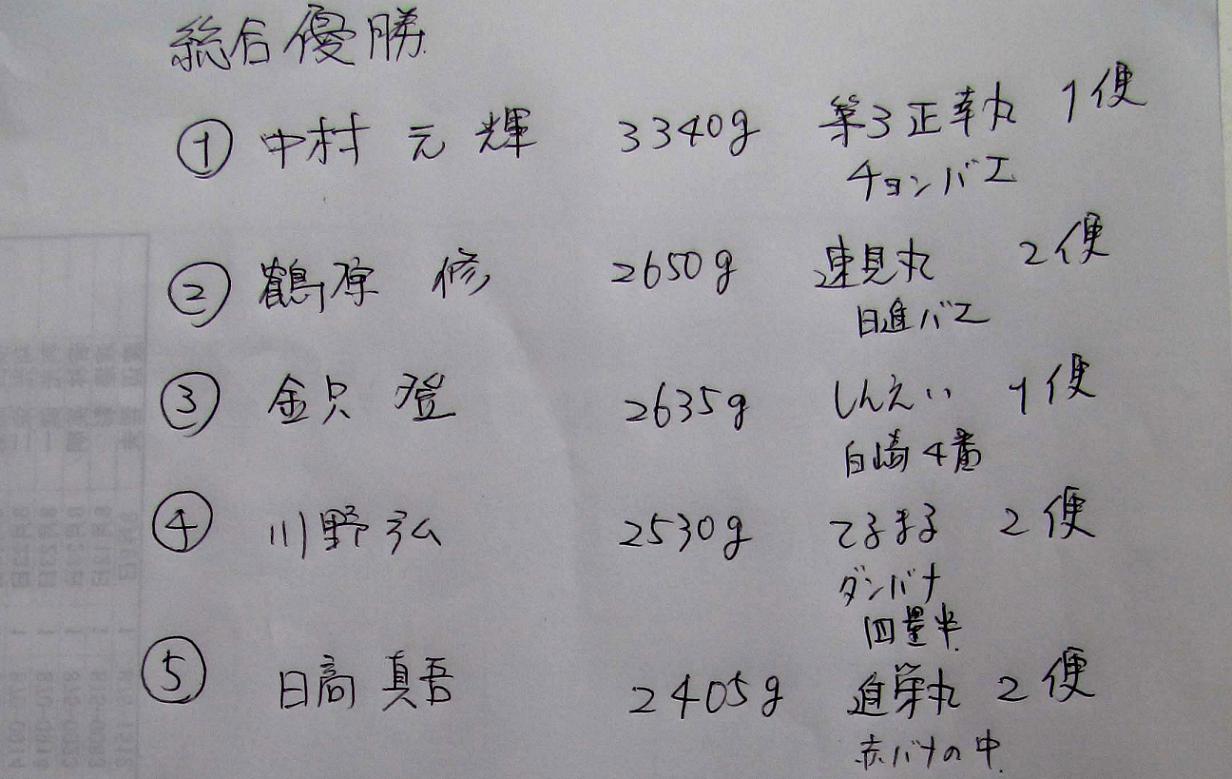 総合優勝
① 中村 元輝 3340g 第3正幸丸 1便
チョンバエ
② 鶴原 修 2650g 速見丸 2便
日進バエ
③ 金只 登 2635g しんえい 1便
白崎4番
④ 川野弘 2530g てるまる 2便
ダンバナ
四畳半
⑤ 日高 真吾 2405g 進栄丸 2便
赤バナの中